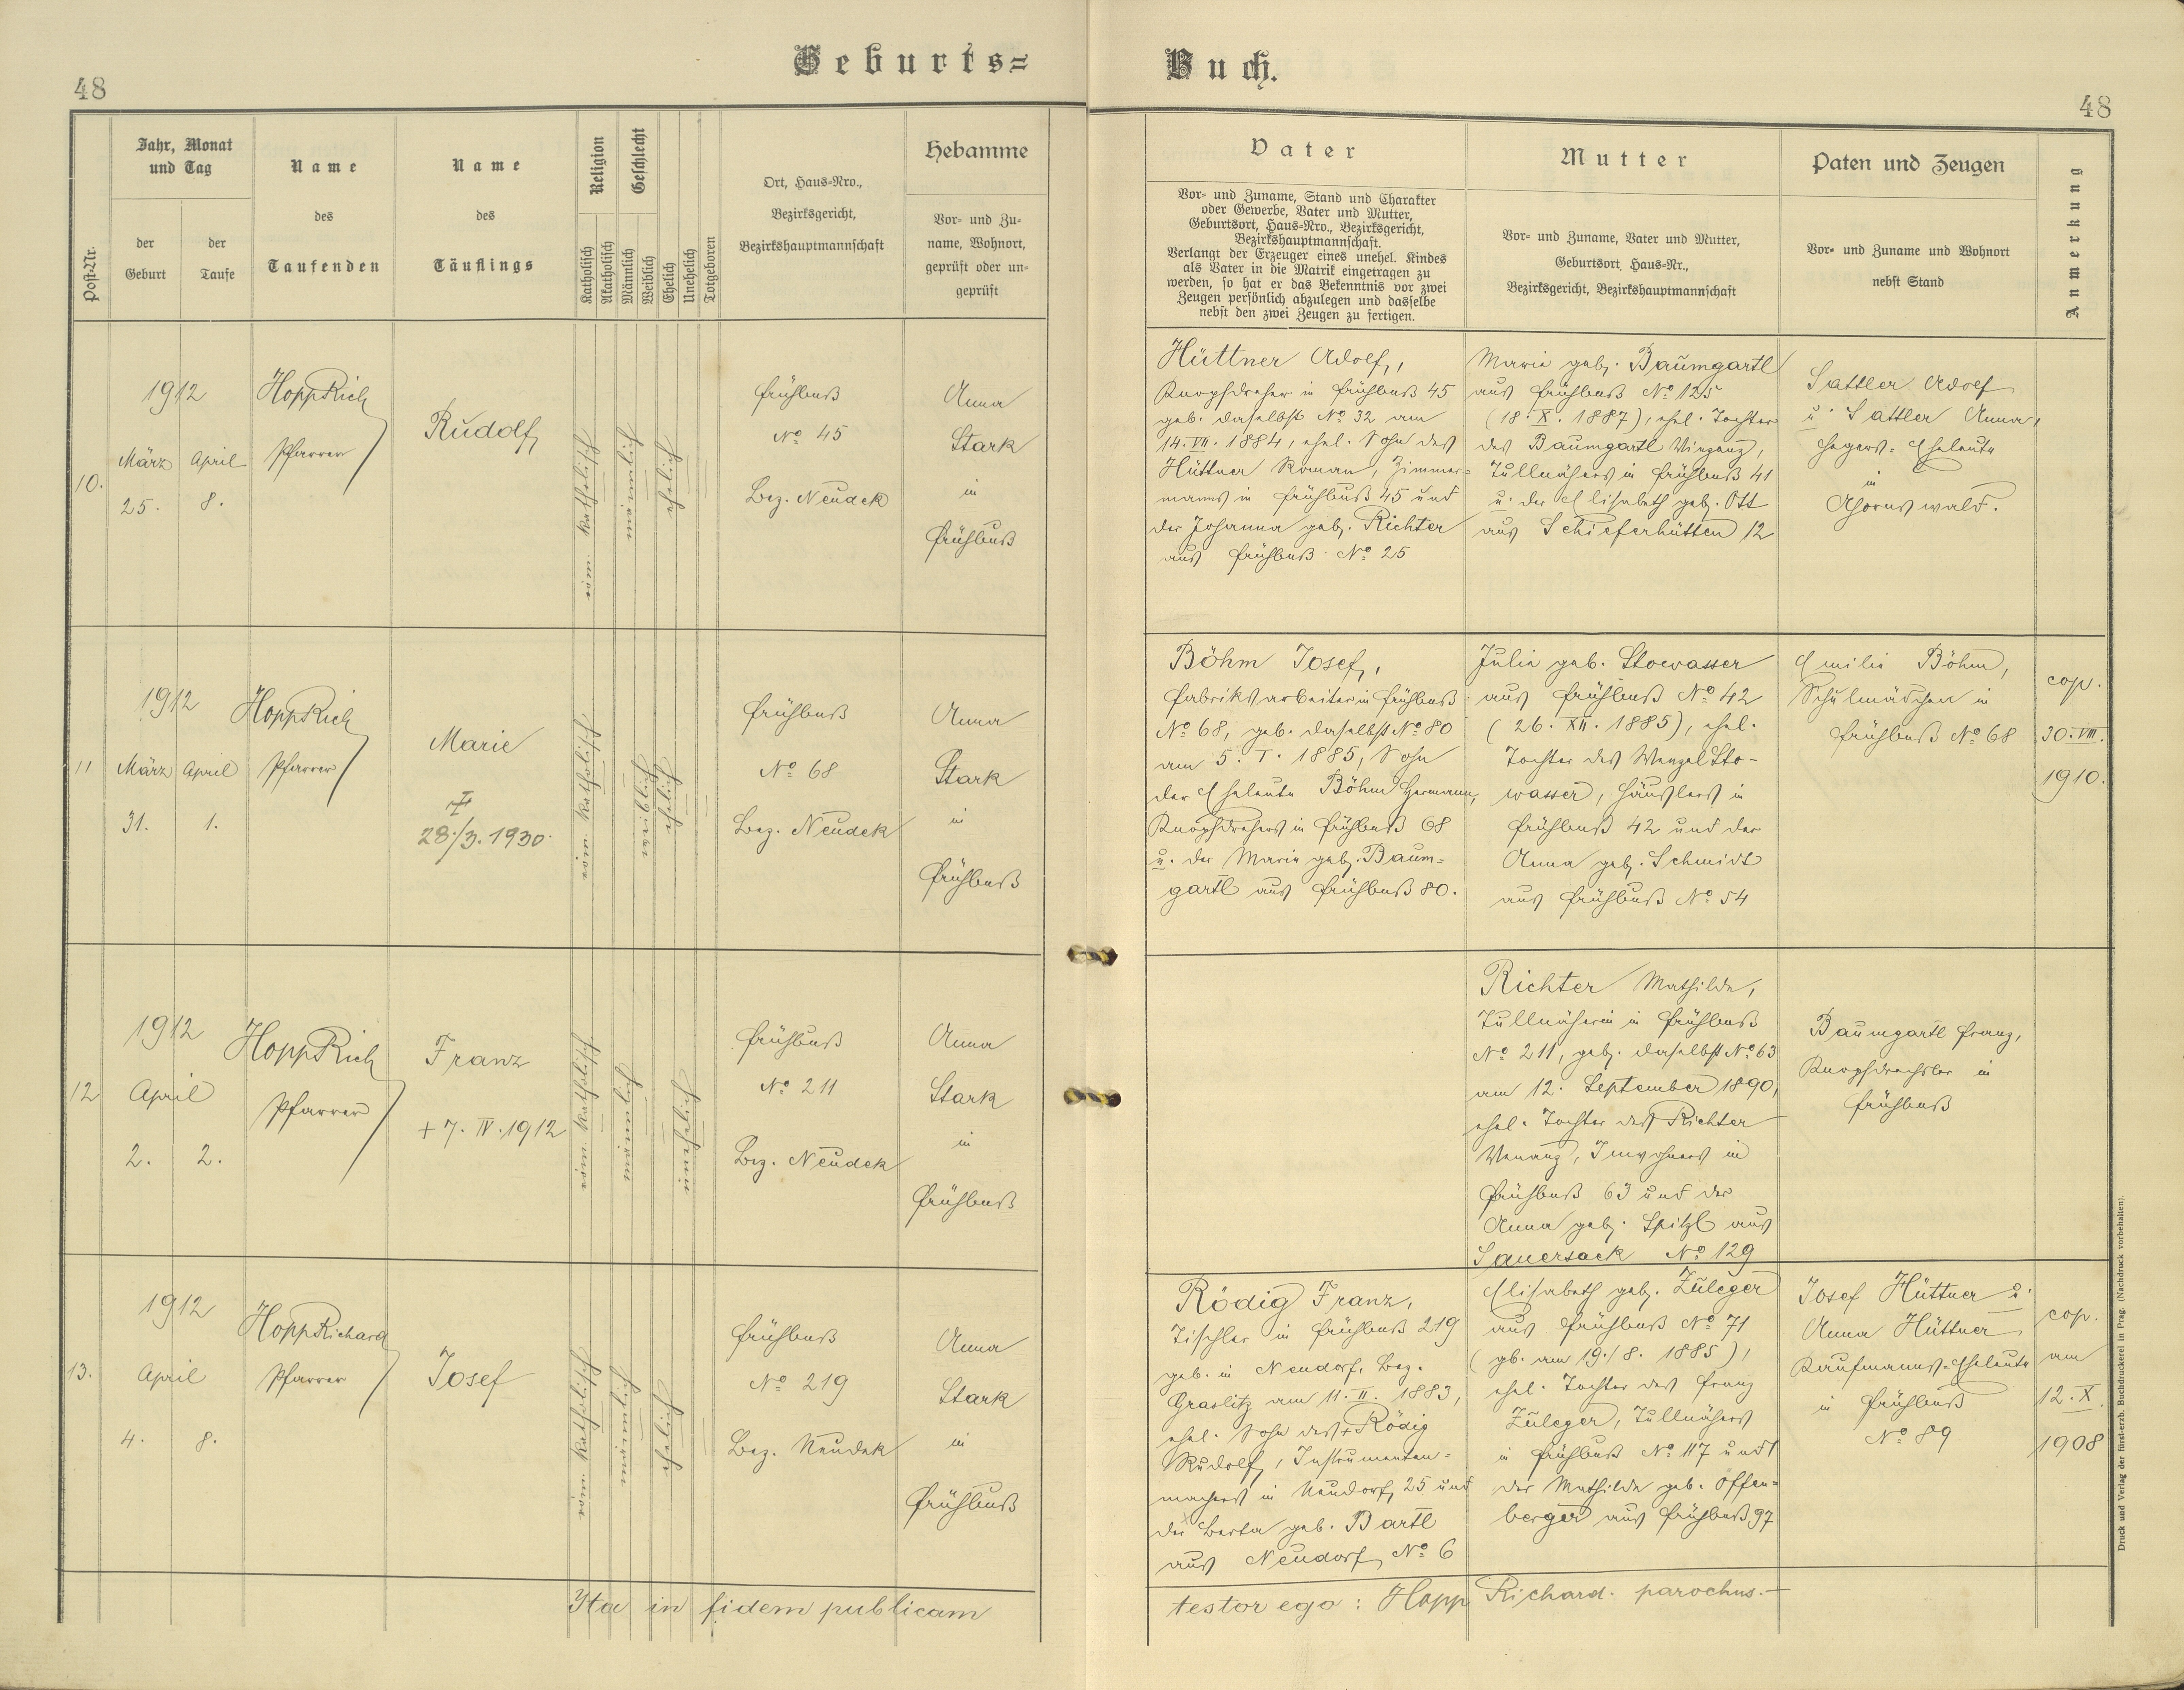 Geburts=
Buch.
48
48
Post-Nr.
Jahr, Monat
und Tag
der
Geburt
der
Taufe
Name
des
Taufenden
Name
des
Täuflings
Religion
Katholisch
Akatholisch
Geschlecht
Männlich
Weiblich
Ehelich
Unehelich
Totgeboren
Ort, Haus-Nro.,
Bezirksgericht,
Bezirkshauptmannschaft
Hebamme
Vor- und Zu-
name, Wohnort,
geprüft oder un-
geprüft
Vater
Vor- und Zuname, Stand und Charakter
oder Gewerbe, Vater und Mutter,
Geburtsort, Haus-Nro., Bezirksgericht,
Bezirkshauptmannschaft.
Verlangt der Erzeuger eines unehel. Kindes
als Vater in die Matrik eingetragen zu
werden, so hat er das Bekenntnis vor zwei
Zeugen persönlich abzulegen und dasselbe
nebst den zwei Zeugen zu fertigen.
Mutter
Vor- und Zuname, Vater und Mutter,
Geburtsort, Haus-Nr.,
Bezirksgericht, Bezirkshauptmannschaft
Paten und Zeugen
Vor- und Zuname und Wohnort
nebst Stand
Anmerkung
10.
1912
März
25.
April
8.
Hopp Rich
Pfarrer
Rudolf
röm. katholisch
männlich
ehelich
Frühbuß
No 45
Bez. Neudek
Anna
Stark
in
Frühbuß
Hüttner Adolf,
Knopfdreher in Frühbuß 45
geb. daselbst No 32 am
14. VII. 1884, ehel. Sohn des
Hüttner Roman, Zimmer=
manns in Frühbuß 45 und
der Johanna geb. Richter
aus Frühbuß No 25
Marie geb. Baumgartl
aus Frühbuß No 125
(18. X. 1887), ehel. Tochter
des Baumgartl Vinzenz,
Tüllnähers in Frühbuß 41
u. der Elisabeth geb. Ott
aus Schieferhütten 12
Sattler Adolf
u. Sattler Anna,
Hegers= Eheleute
in
Ahornswald.
11
1912
März
31.
April
1.
Hopp Rich
Pfarrer
Marie
28./3. 1930.
röm. katholisch
weiblich
ehelich
Frühbuß
No 68
Bez. Neudek
Anna
Stark
in
Frühbuß
Böhm Josef,
Fabriksarbeiter in Frühbuß
No 68, geb. daselbst No 80
am 5. I. 1885, Sohn
der Eheleute Böhm Hermann,
Knopfdrehers in Frühbuß 68
u. der Marie geb. Baum=
gartl aus Frühbuß 80.
Julie geb. Stowasser
aus Frühbuß No 42
(26. XII. 1885), ehel.
Tochter des Wenzel Sto-
wasser, Häuslers in
Frühbuß 42 und der
Anna geb. Schmidt
aus Frühbuß No 54
Emilie Böhm,
Schulmädchen in
Frühbuß No 68
cop.
30. VIII.
1910.
12
1912
April
2.
2.
Hopp Rich
Pfarrer
Franz
+ 7. IV. 1912
röm. katholisch
männlich
unehelich
Frühbuß
No 211
Bez. Neudek
Anna
Stark
in
Frühbuß
Richter Mathilde,
Tüllnäherin in Frühbuß
No 211, geb. daselbst No 63
am 12. September 1890,
ehel. Tochter des Richter
Venanz, Inwohners in
Frühbuß 63 und der
Anna geb. Spitzl aus
Sauersack No 129
Baumgartl Franz,
Knopfdrechsler in
Frühbuß
13.
1912
April
4.
8.
Hopp Richard
Pfarrer
Josef
röm. katholisch
männlich
ehelich
Frühbuß
No 219
Bez. Neudek
Anna
Stark
in
Frühbuß
Rödig Franz,
Tischler in Frühbuß 219
geb. in Neudorf, Bez.
Graslitz am 11. II. 1883,
ehel. Sohn des + Rödig
Rudolf, Instrumenten=
machers in Neudorf 25 und
der Berta geb. Bartl
aus Neudorf No 6
Elisabeth geb. Züleger
aus Frühbuß No 71
(gb. am 19./8. 1885),
ehel. Tochter des Franz
Züleger, Tüllnähers
in Frühbuß No 117 und
der Mathilde geb. Offen=
berger aus Frühbuß 97
Josef Hüttner u.
Anna Hüttner
Kaufmanns=Eheleute
in Frühbuß
No 89
cop.
am
12. X.
1908
Ita in fidem publicam
testor ego: Hopp Richard. parochus.
Druck und Verlag der fürst-erzb. Buchdruckerei in Prag. (Nachdruck vorbehalten).